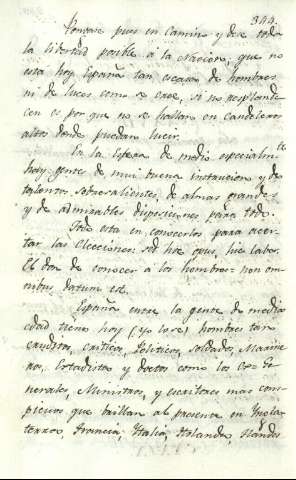 344.
Pongase pues en Camino y dese toda
la libertad posible á la Nacion, que no
esta hoy España tan escasa de hombres
ni de luces como se cree, si no resplande-
cen es por que no se hallan en candeleros
altos donde puedan lucir.
En la Esfera de medio especialmte
hay gentes de mui buena instruccion y de
talentos sobresalientes, de almas grandes
y de admirables disposiciones para todo.
Todo esta en conocerlos para acer-
tar las Elecciones: sed hic opus, hic labor.
El don de conocer a los hombres = non om-
nibus datum est.
España entre la gente de media
edad tiene hoy (yo lo sé) hombres tan
eruditos, criticos, Politicos, soldados, Marine
ros, Estadistas y doctos como los Ge-
nerales, Ministros, y escritores mas cons-
picuos que brillan al presente en Ingla-
terra, Francia, Italia, Holanda, Flandes